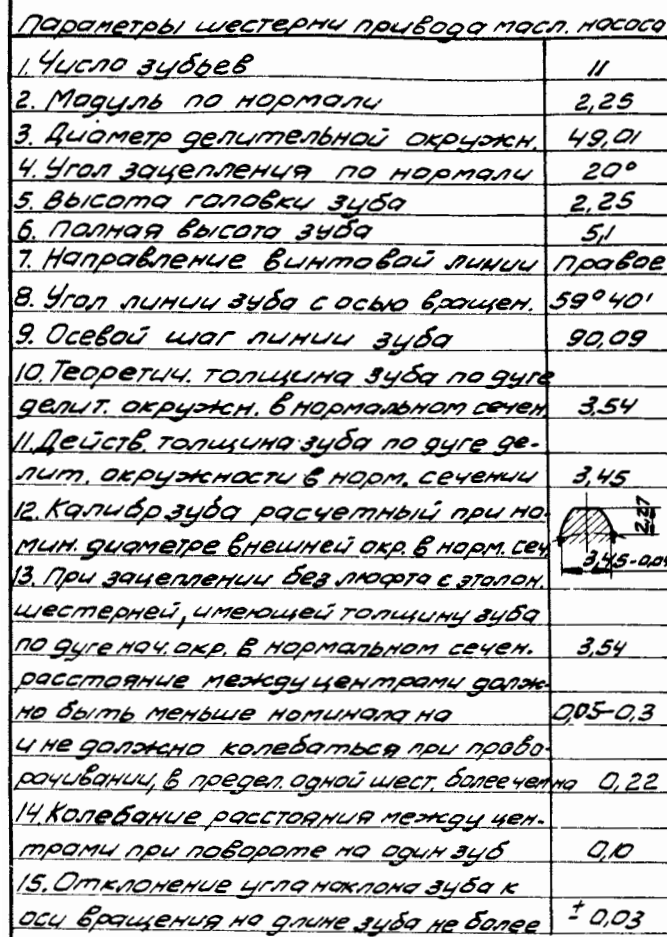 Параметры шестерни привода масл. насоса
1. Число зубьев 11
2. Модуль по нормали 2,25
3. Диаметр делительной окружн. 49,01
4. Угол зацепления по нормали 20°
5. Высота головки зуба 2,25
6. Полная высота зуба 5,1
7. Направление винтовой линии Правое
8. Угол линии зуба с осью вращен. 59°40'
9. Осевой шаг линии зуба 90,09
10. Теоретич. толщина зуба по дуге
делит. окружн. в нормальном сечен. 3,54
11. Действ. толщина зуба по дуге де-
лит. окружности в норм. сечении 3,45
12. Калибр зуба расчетный при но- 2,27
мин. диаметре внешней окр. в норм. сеч 3,45-0,09
13. При зацеплении без люфта с эталон.
шестерней, имеющей толщину зуба
по дуге нач. окр. в нормальном сечен. 3,54
расстояние между центрами долж-
но быть меньше номинала на 0,05-0,3
и не должно колебаться при прово-
рачивании, в предел. одной шест. более чем на 0,22
14. Колебание расстояния между цен-
трами при повороте на один зуб 0,10
15. Отклонение угла наклона зуба к
оси вращения на длине зуба не более ± 0,03